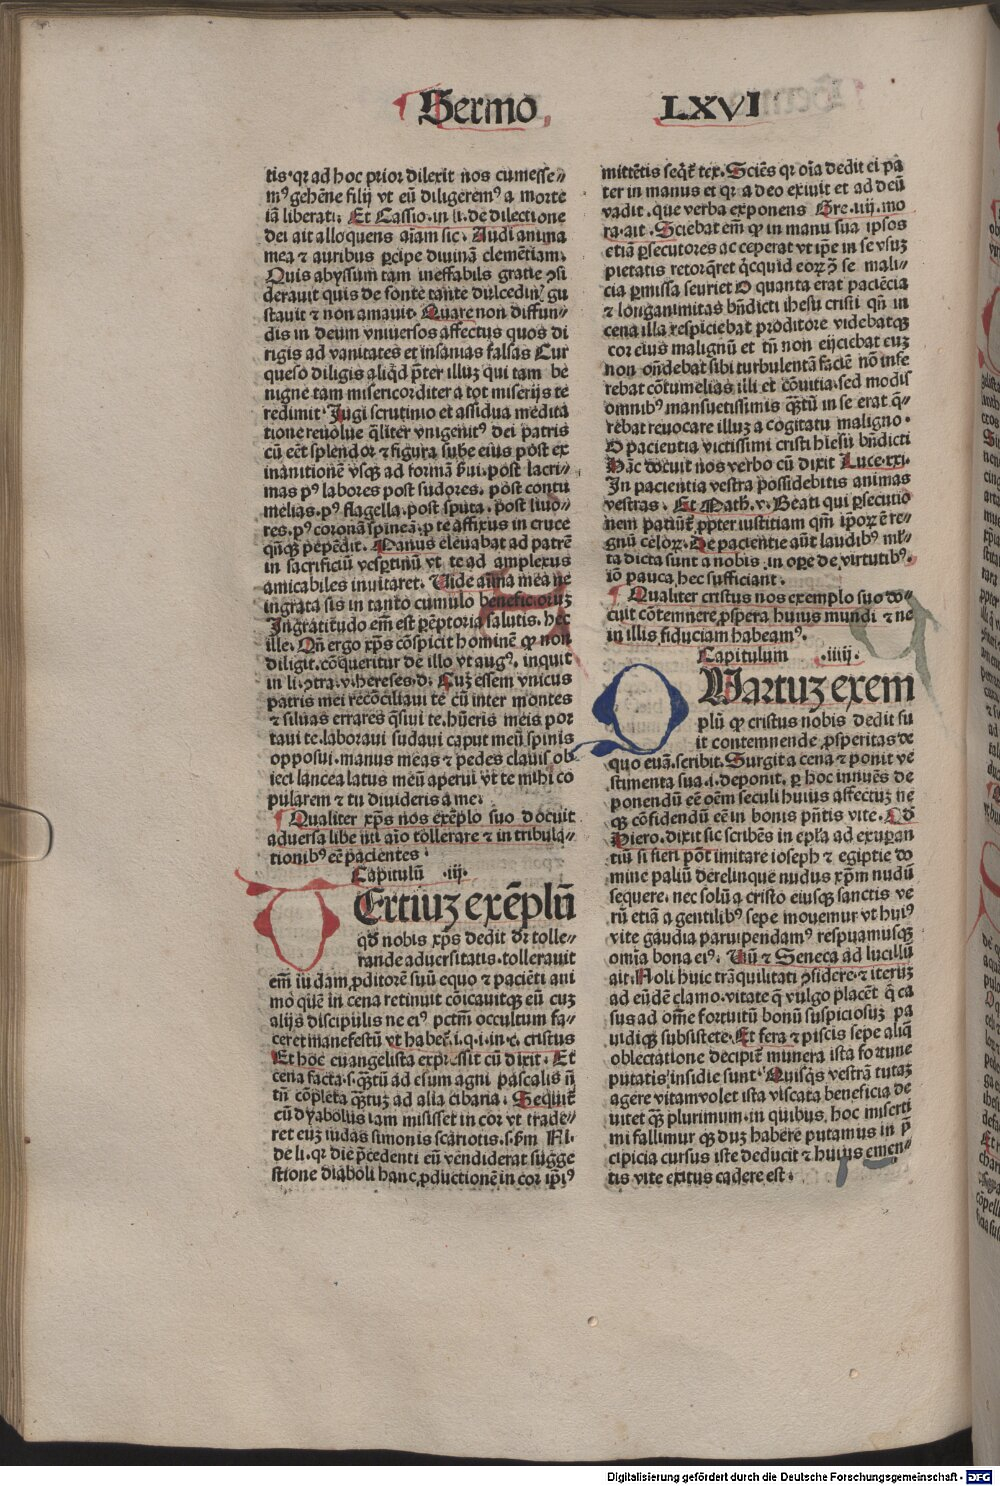 Sermo LXVI
tis· qꝛ ad hoc prior dilexit nos cum esse⸗
mꝰ gehēne filij vt eū diligeremꝰ a morte
iā liberati. Et Cassio. in li. de dilectione
dei ait alloquens aīam sic. Audi anima
mea ⁊ auribus ꝑcipe diuinā clemētiam.
Quis abyssum tam ineffabilis gratie ꝯsi
derauit quis de fonte tante dulcedinꝭ gu
stauit ⁊ non amauit. Quare non diffun⸗
dis in deum vniuersos affectus quos di
rigis ad vanitates et insanias falsas Cur
queso diligis aliqd p̄ter illuꝫ qui tam be
nigne tam misericorditer a tot miserijs te
redimit. Iugi scrutinio et assidua medita
tione reuolue qͣliter vnigenitꝰ dei patris
cū eēt splendor ⁊ figura sube eius post ex
inanitionē vsqꝫ ad formā ẜui. post lacri⸗
mas pꝰ labores post sudores. post contu
melias. pꝰ flagella. post sputa. post liuo⸗
res. pꝰ coronā spineā. ꝓ te affixus in cruce
qn̄qꝫ pepēdit. Manus eleuabat ad patrē
in sacrificiū vesꝑtinū vt te ad amplexus
amicabiles inuitaret. Uide aīma mea ne
ingrata sis in tanto cumulo beneficioruꝫ
Ingratitudo em̄ est peēptoria salutis. hec
ille. Qn̄ ergo xp̄s cōspicit hominē ꝙ non
diligit. cōqueritur de illo vt augꝰ. inquit
in li. ꝯtra. v. hereses. d. Cuꝫ essem vnicus
patris mei recōciliaui te cū inter montes
⁊ siluas errares q̄siui te. hūeris meis por
taui te. laboraui sudaui caput meū spinis
opposui. manus meas ⁊ pedes clauis ob
ieci lancea latus meū aperui vt te mihi co
pularem ⁊ tu diuideris a me.
Qualiter xp̄s nos exēplo suo docuit
aduersa libenti aīo tollerare ⁊ in tribula⸗
tionibꝰ eē pacientes.
Capitulū .iij.
TErtiuꝫ exēplū
qd̄ nobis xp̄s dedit dr̄ tolle⸗
rande aduersitatis. tollerauit
em̄ iudam ꝓditorē suū equo ⁊ paciēti ani
mo quē in cena retinuit cōicauitqꝫ eū cuꝫ
alijs discipulis ne eiꝰ pctm̄ occultum fa⸗
ceret manefestū vt habet̄. i. q. i. in. c. cristus
Et hoc euangelista expressit cū dixit. Et
cena facta. s. qꝫtū ad esum agni pascalis n̄
tn̄ cōpleta qꝫtuꝫ ad alia cibaria. Sequit̄
cū dyabolus iam misisset in cor vt trade⸗
ret euꝫ iudas simonis scariotis. s. fm Ni.
de li. qꝛ die p̄cedenti eū vendiderat sugge
stione diaboli hanc ꝓductionē in cor ip̄iꝰ
mittētis seqt̄ tex. Sciēs qꝛ oīa dedit ei pa
ter in manus et qꝛ a deo exiuit et ad deū
vadit. que verba exponens Gre. iiij. mo
ra. ait. Sciebat em̄ ꝙ in manu sua ipsos
etiā ꝑsecutores acceperat vt ip̄e in se vsuꝫ
pietatis retorq̄ret q̇cquid eoꝝ ꝯ se mali⸗
cia ꝑmissa seuriet O quanta erat paciēcia
⁊ longanimitas bn̄dicti ihesu cristi qn̄ in
cena illa respiciebat proditore videbatqꝫ
cor eius malignū et tn̄ non eijciebat euꝫ
non on̄debat sibi turbulentā faciē nō infe
rebat cōtumelias illi et cōuitia. sed modis
omnibꝰ mansuetissimis qꝫtū in se erat q̄⸗
rebat reuocare illuꝫ a cogitatu maligno.
O pacientia victissimi cristi hiesu bn̄dicti
Hāc docuit nos verbo cū dixit Luce. xxi.
In pacientia vestra possidebitis animas
vestras. Et Math. v. Beati qui ꝑsecutio
nem patiūt̄ ꝓpter iustitiam qm̄ ip̄oꝝ ē re⸗
gnū celoꝝ. De pacientie aūt laudibꝰ ml̄⸗
ta dicta sunt a nobis. in ope de virtutibꝰ.
iō pauca hec sufficiant.
Qualiter cristus nos exemplo suo do⸗
cuit cōtemnere ꝓspera huius mundi ⁊ ne
in illis fiduciam habeamꝰ.
Capitulum .iiij.
QUartuꝫ exem
plū ꝙ cristus nobis dedit fu
it contemnende ꝓsperitas de
quo euā. scribit. Surgit a cena ⁊ ponit ve
stimenta sua. i. deponit. ꝑ hoc innuēs de
ponendū eē oēm seculi huius affectuꝫ ne
qꝫ cōfidendū eē in bonis pn̄tis vite. Qd̄
Hiero. dixit sic scribēs in epl̄a ad exupan
tiū si fieri pōt imitare ioseph ⁊ egiptie do
mine paliū derelinque nudus xp̄m nudū
sequere. nec solū a cristo eiusqꝫ sanctis ve
rū etiā a gentilibꝰ sepe mouemur vt huiꝰ
vite gaudia paruipendamꝰ respuamusqꝫ
omīa bona eiꝰ. Un̄ ⁊ Seneca ad lucillū
ait. Noli huic trāquilitati ꝯsidere. ⁊ iteruꝫ
ad eūdē clamo. vitate q̄ vulgo placēt q̄ ca
sus ad om̄e fortuitū bonū suspiciosuꝫ pa
uidiqꝫ subsistete. Et fera ⁊ piscis sepe aliq̄
oblectatione decipit̄ munera ista fortune
putatis insidie sunt. Quisqs vestrā tutaꝫ
agere vitam volet ista viscata beneficia de
uitet qꝫ plurimum. in quibus. hoc miserri
mi fallimur qꝫ duꝫ habere putamus in p̄
cipicia cursus iste deducit ⁊ huius emen⸗
tis vite exitus cadere est.
Digitalisierung gefördert durch die Deutsche Forschungsgemeinschaft - DFG